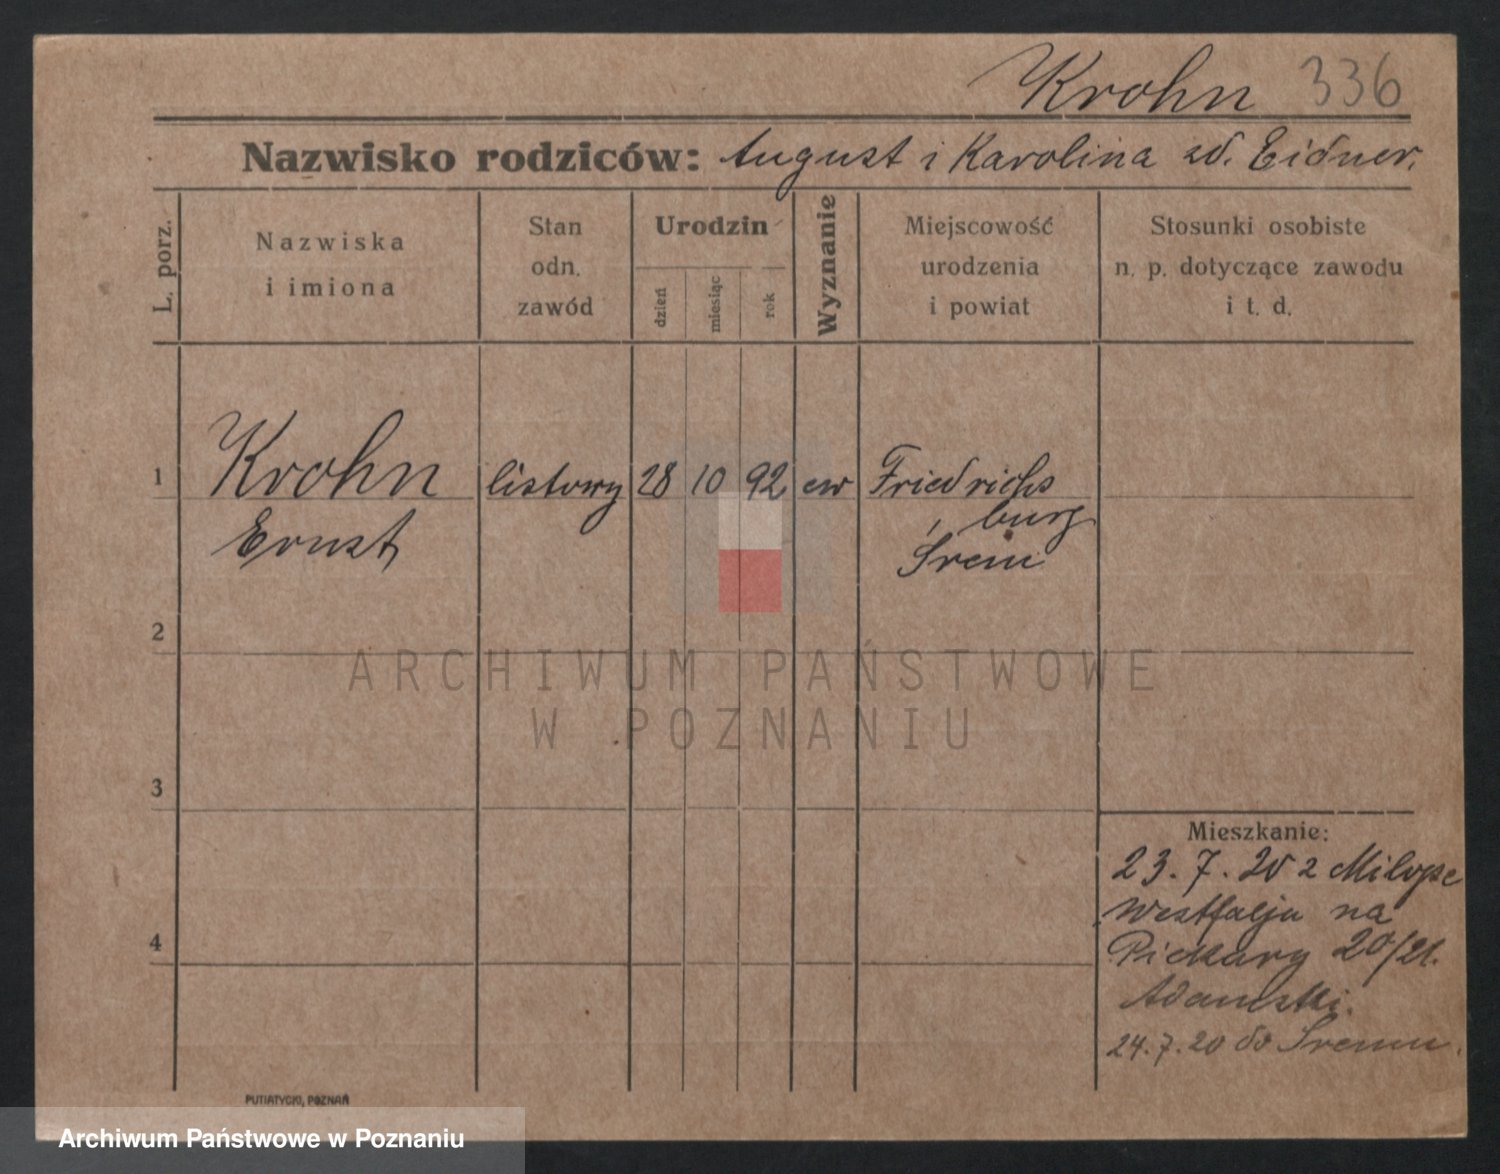 Krohn 336
Nazwisko rodziców: August i Karolina zd. Eidner.
L. porz.
Nazwiska
i imiona
Stan
odn.
zawód
Urodzin
dzień
miesiąc
rok
Wyznanie
Miejscowość
urodzenia
i powiat
Stosunki osobiste
n. p. dotyczące zawodu
i t. d.
1 Krohn listowy 28 10 92 ew Friedrichs
burg
Ernst Śrem
2
ARCHIWUM PAŃSTWOWE
W POZNANIU
3
Mieszkanie:
23.7.20 z
Westfalju na
4
Piekary 20/21.
Adamski.
24.7.20 do Śremu.
PUTIATYCKI, POZNAŃ
Archiwum Państwowe w Poznaniu